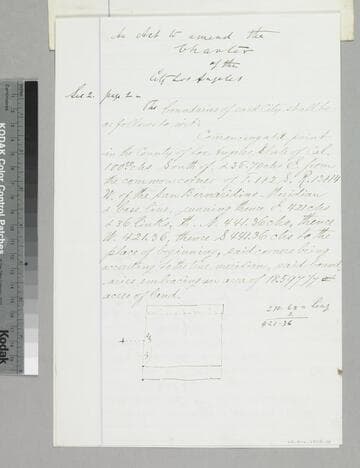 An Act to amend the
Charter
of the
City Los Angeles
Sec 2. page 2
The boundaries of said City shall be
as follows to wit:
Commencing at a point
in the County of Los Angeles State of Cal.
100 chs South of, & 35.74 chs E. from
the common corner of T. 1 & 2 S. R. 13 & 14
W. of the San Bernardino Meridian
& Base line, running thence E 421 chs
& 36 links, th. N 441.36 chs, thence
W. 421.36, thence S 441.36 chs to the
place of beginning, said courses being
according to the true meridian, said bound
aries embracing an area of
acres of land.
210.68 = leag
2
421.36
KODAK Color Control Patches
Kodak